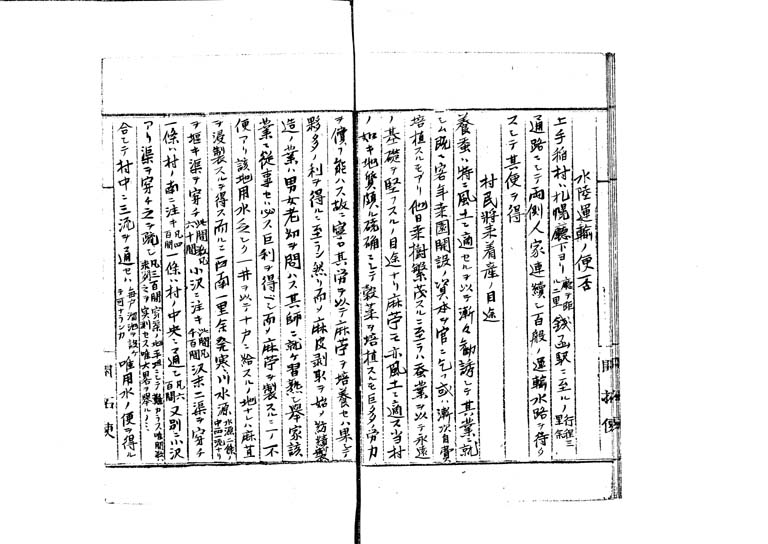 水陸運輸ノ便否
上手稲村ハ札幌廳下ヨリ 廳ヲ距ル二里 銭函駅ニ至ルノ 行程三里余
通路ニシテ両側人家連續シ百般ノ運輸水路ヲ待タ
スシテ其便ヲ得
村民将来着産ノ目途
養蚕ハ特ニ風土ニ適セルヲ以テ漸々勧誘シテ其業ニ就
シム既ニ客年桑園開設ノ資本ヲ官ニ乞ヒ或ハ漸次自費
培植スルモアリ他日桑樹繁茂スルニ至ラハ蚕業ヲ以テ永遠
ノ基礎ヲ堅フスルノ目途ナリ麻苧モ亦風土ニ適ス当村
ノ如キ地質頗ル磽确ニシテ穀菜ヲ培植スルモ巨多ノ労力
ヲ償フ能ハス故ニ寧ロ其労ヲ以テ麻苧ヲ培養セハ果シテ
夥多ノ利ヲ得ルニ至ラン然リ而メ麻皮剥取ヲ始メ紡績製
造ノ業ハ男女老幼ヲ問ハス其師ニ就ケ習熟シ挙家該
業ニ従事セハ必ス巨利ヲ得ヘシ而メ麻苧ヲ製スルニ一ノ不
便アリ該地用水乏シク一井ヲ以テ十戸ニ給スルノ地ナレハ麻苴
ヲ浸製スルヲ得ス而ルニ西南一里余発寒川水源 水源二條ノ中西ノ流ナリ
ヲ堰キ渠ヲ穿チ 此間凡六十間 小沢ニ注キ 此間凡千百間 沢末二渠ヲ穿チ
一條ハ村ノ南ニ注キ 凡四百間 一條ハ村ノ中央ニ通シ 凡六百間 又別ニ小沢
アリ渠ヲ穿チ之ヲ疏シ 凡三百間
合シテ村中ニ三流ヲ通セハ 毎戸溜池ヲ設ケテ可ナランカ 唯用水ノ便ヲ得ル
開拓使
開拓使